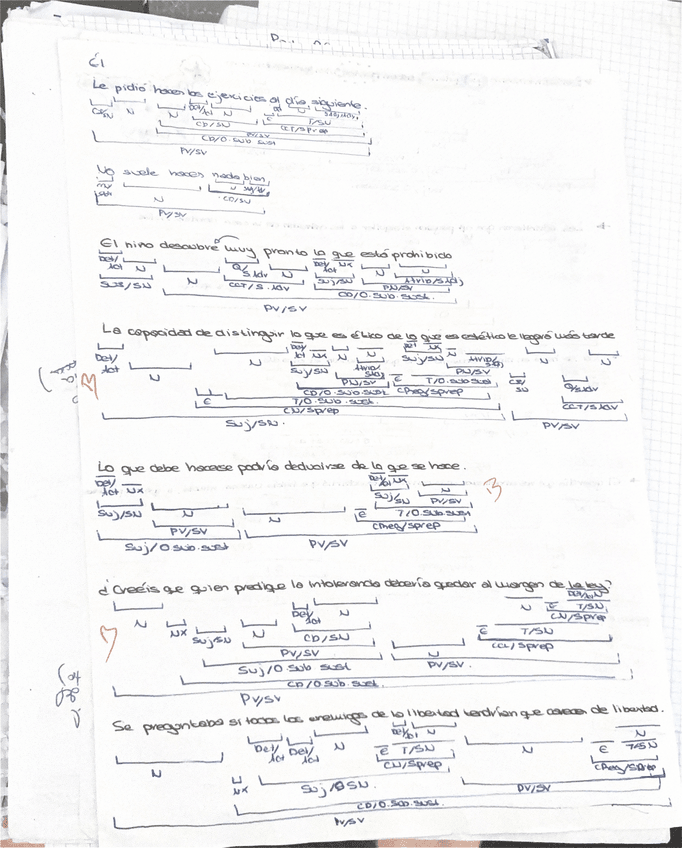 C1
Le pidió hacer los ejercicios al día siguiente.
CI/SN N N Det/Art N E N S.Adj
CD/SN T/SN
CCT/Sprep
PV/SV
CD/O.Sub.Sust
PV/SV
No suele hacer nada bien
N CD/SN
PV/SV
El niño descubre muy pronto lo que está prohibido
Det/Art N N Q/S.Adv N Det/Art NX N N
Suj/SN CCT/S.Adv Suj/SN Atrib/S.Adj
PN/SV
CD/O.Sub.Sust.
PV/SV
La capacidad de distinguir lo que es ético de lo que es estético le llegará más tarde
Det/Art N N Det/Art NX N N Suj/SN N Atrib/S.Adj N N
Suj/SN Atrib/S.Adj PN/SV CI/SN Q/S.Adv
PN/SV E T/O.Sub.Sust
E CD/O.Sub.Sust CReg/Sprep CCT/S.Adv
T/O.Sub.Sust.
CN/Sprep
Suj/SN. PV/SV
Lo que debe hacerse podría deducirse de lo que se hace.
Det/Art NX Det/Art NX
Suj/SN N N Suj/SN N
PV/SV E PV/SV
T/O.Sub.Sust
Suj/O.Sub.Sust PV/SV CReg/Sprep
¿Creéis que quien predique la intolerancia debería quedar al margen de la ley?
N NX Suj/SN N Det/Art N N E Det/Art N
CD/SN T/SN
CN/Sprep
PV/SV N E T/SN
Suj/O Sub Sust PV/SV. CCL/Sprep
CD/O.Sub.Sust.
PV/SV
Se preguntaba si todos los enemigos de la libertad tendrían que carecer de libertad.
N NX Det/Art Det/Art N E Det/Art N N E N
T/SN T/SN
CN/Sprep CReg/Sprep
Suj/SN. PV/SV
CD/O.Sub.Sust.
PV/SV